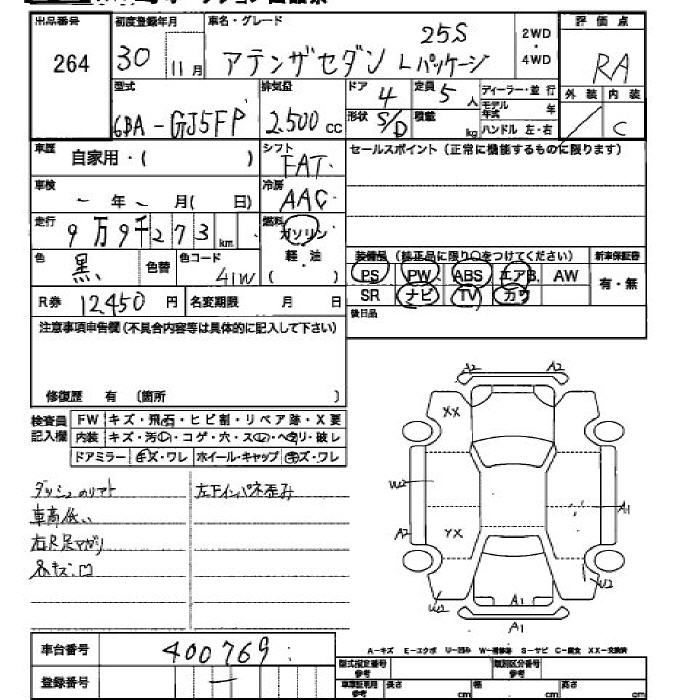 出品番号 初度登録年月 車名・グレード 評価点
264 30 11月 アテンザセダン 25S Lパッケージ 2WD・4WD RA
型式 排気量 ドア 4 定員 5人 ディーラー・並行 外装 内装
6BA-GJ5FP 2,500cc 形状 S/D 積載 kg モデル年式 年 C
ハンドル 左・右
車歴 自家用・( ) シフト FAT セールスポイント(正常に機能するものに限ります)
車検 - 年 - 月( 日) 冷房 AAC
走行 9万9千273km 燃料 ガソリン
色 黒 色替 色コード 41W 軽・油 ( )
装備品 (純正品に限り○をつけてください) 新車保証書
PS PW ABS エアB AW 有・無
SR ナビ TV カワ
R券 12,450円 名変期限 月 日 後日品
注意事項申告欄(不具合内容等は具体的に記入して下さい)
修復歴 有 (箇所 )
検査員記入欄 FW キズ・飛石・ヒビ割・リペア跡・X要
内装 キズ・汚・コゲ・穴・スレ・ヘタリ・破レ
ドアミラー キズ・ワレ ホイール・キャップ キズ・ワレ
左下インパネ歪み
車高低い
A2 A2
XX
W2
A1
A2 YX
W2
W2 A1
A1
車台番号 400769
登録番号 -
A-キズ E-エクボ U-凹み W-補修跡 S-サビ C-腐食 XX-交換済
型式指定番号 参考 類別区分番号 参考
車庫証明用 参考 長さ cm 幅 cm 高さ cm